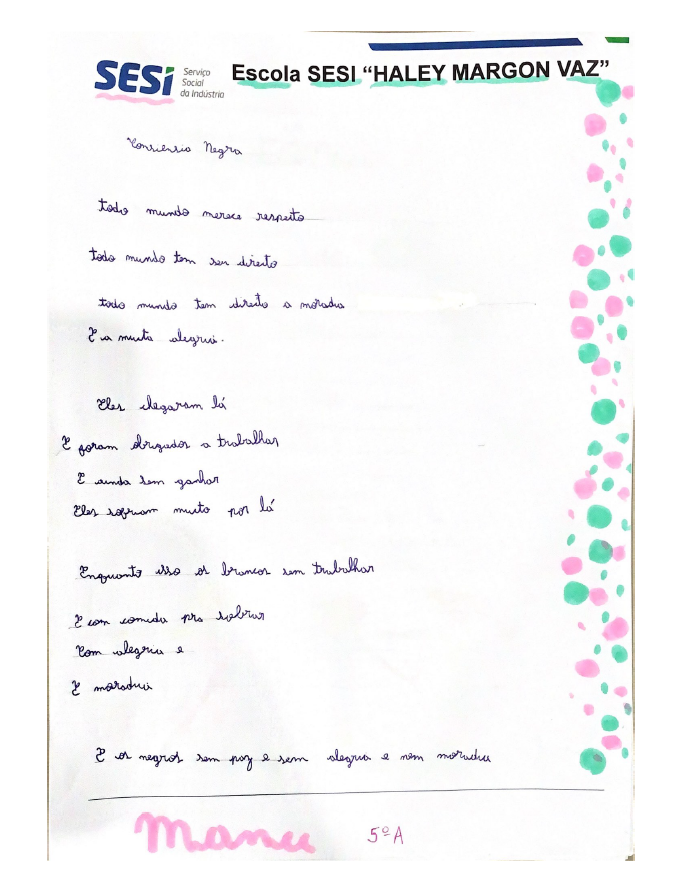 SESI Serviço
Social
da Indústria
Escola SESI “HALEY MARGON VAZ”
Consiensia Negra
todo mundo merece respeito
todo mundo tem seu direito
todo mundo tem direito a moradia
E a muita alegria.
Eles chegaram lá
E foram obrigados a trabalhar
E ainda sem ganhar
Eles sofriam muito por lá
Enquanto isso os brancos sem trabalhar
E com comida pra sobrar
Com alegria e
E moradia
E os negros sem paz e sem alegria e nem moradia
Manu 5º A